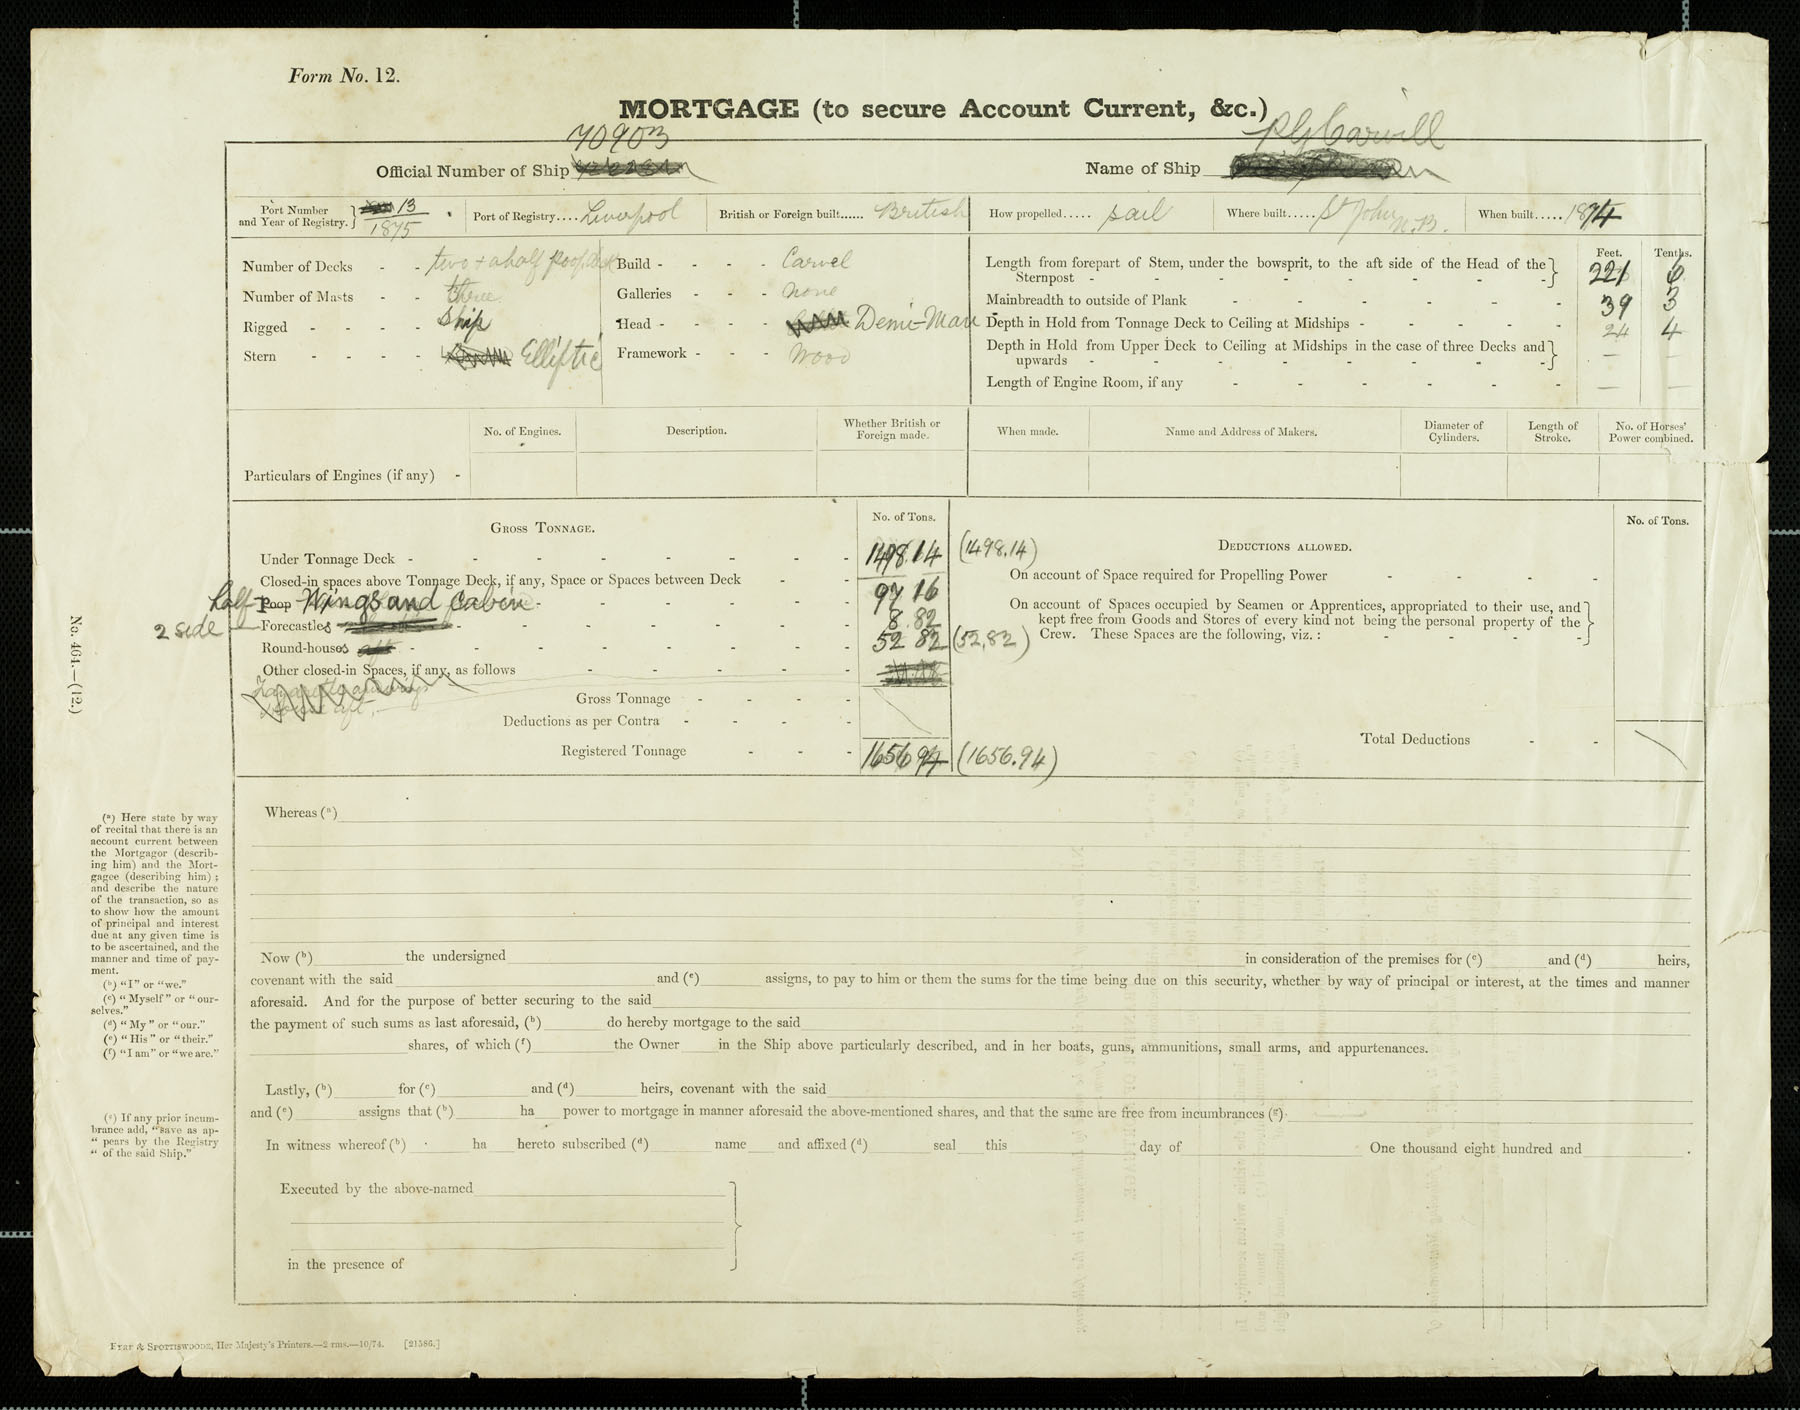 Form No. 12.
MORTGAGE (to secure Account Current, &c.)
70903
P G Carvill
Official Number of Ship
Name of Ship
Port Number and Year of Registry. } 13 / 1875
Port of Registry.... Liverpool
British or Foreign built...... British
How propelled..... sail
Where built..... St John N.B.
When built..... 1874
Number of Decks - - two + a half poop deck
Number of Masts - - three
Rigged - - - - Ship
Stern - - - - Elliptic
Build - - - - Carvel
Galleries - - - none
Head - - - - Demi-Man
Framework - - - Wood
Feet. Tenths.
Length from forepart of Stem, under the bowsprit, to the aft side of the Head of the Sternpost - - - - - - - - } 221 6
Mainbreadth to outside of Plank - - - - - - 39 3
Depth in Hold from Tonnage Deck to Ceiling at Midships - - - - - 24 4
Depth in Hold from Upper Deck to Ceiling at Midships in the case of three Decks and upwards - - - - - - - - } — —
Length of Engine Room, if any - - - - - - — —
No. of Engines.
Description.
Whether British or Foreign made.
When made.
Name and Address of Makers.
Diameter of Cylinders.
Length of Stroke.
No. of Horses' Power combined.
Particulars of Engines (if any) -
GROSS TONNAGE.
No. of Tons.
Under Tonnage Deck - - - - - - - - 1498.14 (1498.14)
Closed-in spaces above Tonnage Deck, if any, Space or Spaces between Deck - -
half Poop Wings and Cabin - - - - - - 97 16
2 side Forecastles - - - - - - - 8.82
Round-houses aft - - - - - - - 52 82 (52.82)
Other closed-in Spaces, if any, as follows - - - - -
Gross Tonnage - - - -
Deductions as per Contra - - - -
Registered Tonnage - - - 1656 94 (1656.94)
No. of Tons.
DEDUCTIONS ALLOWED.
On account of Space required for Propelling Power - - - -
On account of Spaces occupied by Seamen or Apprentices, appropriated to their use, and
kept free from Goods and Stores of every kind not being the personal property of the
Crew. These Spaces are the following, viz.: - - - - }
Total Deductions - -
No. 464.—(12.)
(a) Here state by way
of recital that there is an
account current between
the Mortgagor (describ-
ing him) and the Mort-
gagee (describing him);
and describe the nature
of the transaction, so as
to show how the amount
of principal and interest
due at any given time is
to be ascertained, and the
manner and time of pay-
ment.
(b) "I" or "we."
(c) "Myself" or "our-
selves."
(d) "My" or "our."
(e) "His" or "their."
(f) "I am" or "we are."
(g) If any prior incum-
brance add, "save as ap-
" pears by the Registry
" of the said Ship."
Whereas (a)
Now (b) the undersigned in consideration of the premises for (c) and (d) heirs,
covenant with the said and (e) assigns, to pay to him or them the sums for the time being due on this security, whether by way of principal or interest, at the times and manner
aforesaid. And for the purpose of better securing to the said
the payment of such sums as last aforesaid, (b) do hereby mortgage to the said
shares, of which (f) the Owner in the Ship above particularly described, and in her boats, guns, ammunitions, small arms, and appurtenances.
Lastly, (b) for (c) and (d) heirs, covenant with the said
and (e) assigns that (b) ha power to mortgage in manner aforesaid the above-mentioned shares, and that the same are free from incumbrances (g).
In witness whereof (b) ha hereto subscribed (d) name and affixed (d) seal this day of One thousand eight hundred and .
Executed by the above-named
in the presence of
EYRE & SPOTTISWOODE, Her Majesty's Printers.—2 rms.—10/74. [21586.]